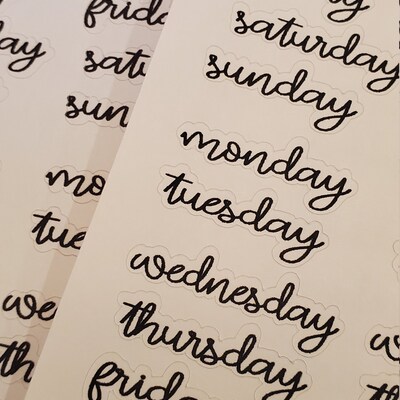 frida
satu
sun
mo
tue
we
th
day
saturday
sunday
monday
tuesday
wednesday
thursday
frida